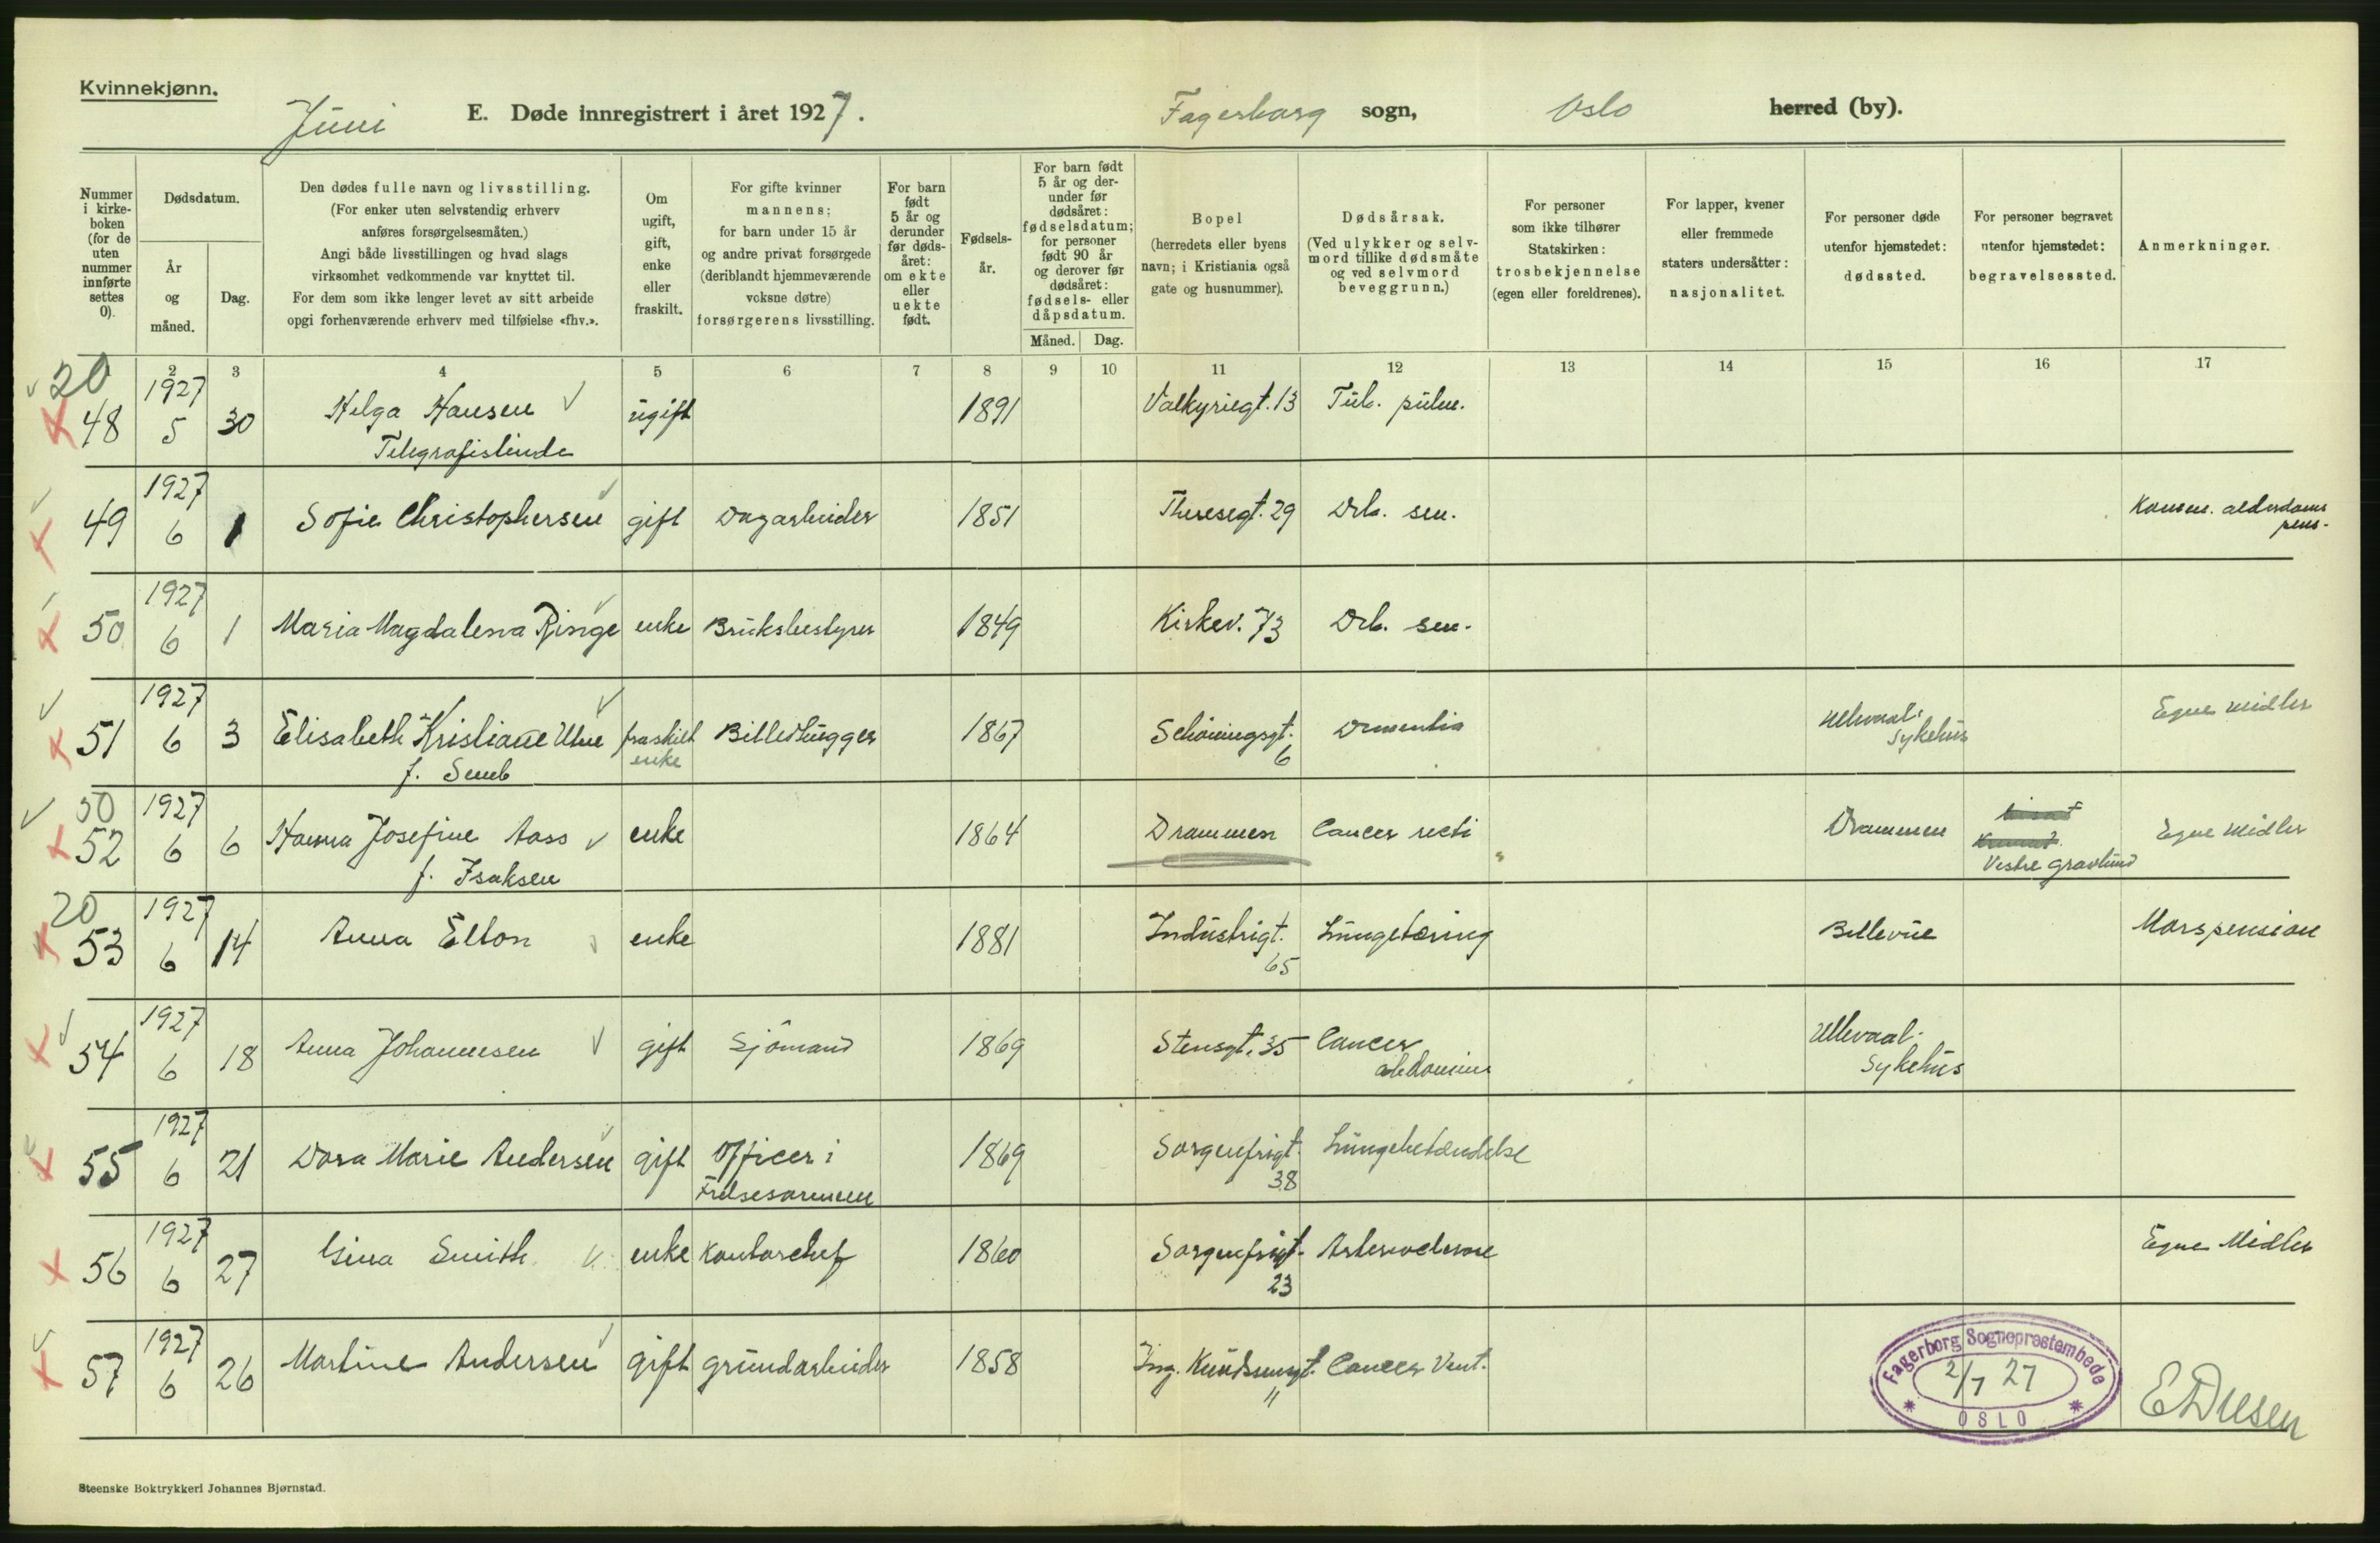 Kvinnekjønn.
Juni E. Døde innregistrert i året 1927. Fagerborg sogn, Oslo herred (by).
Nummer i kirke-boken (for de uten nummer innførte settes 0).
Dødsdatum.
År og måned.
Dag.
Den dødes fulle navn og livsstilling.
(For enker uten selvstendig erhverv
anføres forsørgelsesmåten.)
Angi både livsstillingen og hvad slags
virksomhet vedkommende var knyttet til.
For dem som ikke lenger levet av sitt arbeide
opgi forhenværende erhverv med tilføielse «fhv.».
Om
ugift,
gift,
enke
eller
fraskilt.
For gifte kvinner
mannens;
for barn under 15 år
og andre privat forsørgede
(deriblandt hjemmeværende
voksne døtre)
forsørgerens livsstilling.
For barn
født
5 år og
derunder
før døds-
året:
om ekte
eller
uekte
født.
Fødsels-
år.
For barn født
5 år og der-
under før
dødsåret:
fødselsdatum;
for personer
født 90 år
og derover før
dødsåret:
fødsels- eller
dåpsdatum.
Måned. Dag.
Bopel
(herredets eller byens
navn; i Kristiania også
gate og husnummer).
Dødsårsak.
(Ved ulykker og selv-
mord tillike dødsmåte
og ved selvmord
beveggrunn.)
For personer
som ikke tilhører
Statskirken:
trosbekjennelse
(egen eller foreldrenes).
For lapper, kvener
eller fremmede
staters undersåtter:
nasjonalitet.
For personer døde
utenfor hjemstedet:
dødssted.
For personer begravet
utenfor hjemstedet:
begravelsessted.
Anmerkninger.
2 3 4 5 6 7 8 9 10 11 12 13 14 15 16 17
20 1927
48 5 30 Helga Hansen ugift 1891 Valkyriegt. 13 Tub. pulm.
Telegrafistinde
1927
49 6 1 Sofie Christophersen gift Dagarbeider 1851 Theresegt. 29 Deb. sen. Komm. alderdoms
pens.
1927
50 6 1 Maria Magdalena Ringe enke Bruksbestyrer 1849 Kirkev. 73 Deb. sen.
1927
51 6 3 Elisabeth Kristiane Utne fraskilt Billedhugger 1867 Schöningsgt. Dementia Ullevaal Egne midler
f. Semb enke 6 Sykehus
50 1927
52 6 6 Hanna Josefine Aass enke 1864 Drammen Cancer recti Drammen Egne midler
f. Isaksen Vestre gravlund
20 1927
53 6 14 Anna Elton enke 1881 Industrigt. Lungetæring Bellevue Morspension
65
1927
54 6 18 Anna Johannesen gift Sjömand 1869 Stensgt. 35 Cancer Ullevaal
abdominis Sykehus
1927
55 6 21 Dora Marie Andersen gift Officer i 1869 Sorgenfrigt. Lungebetændelse
Frelsesarmeen 38
1927
56 6 27 Gina Smith enke Kontorchef 1860 Sorgenfrigt. Egne Midler
23
1927
57 6 26 Martine Andersen gift grundarbeider 1858 Jørg. Knudsensgt. Cancer Vent.
11
Fagerborg Sogneprestembede
2/7 27
OSLO
Steenske Boktrykkeri Johannes Bjørnstad.